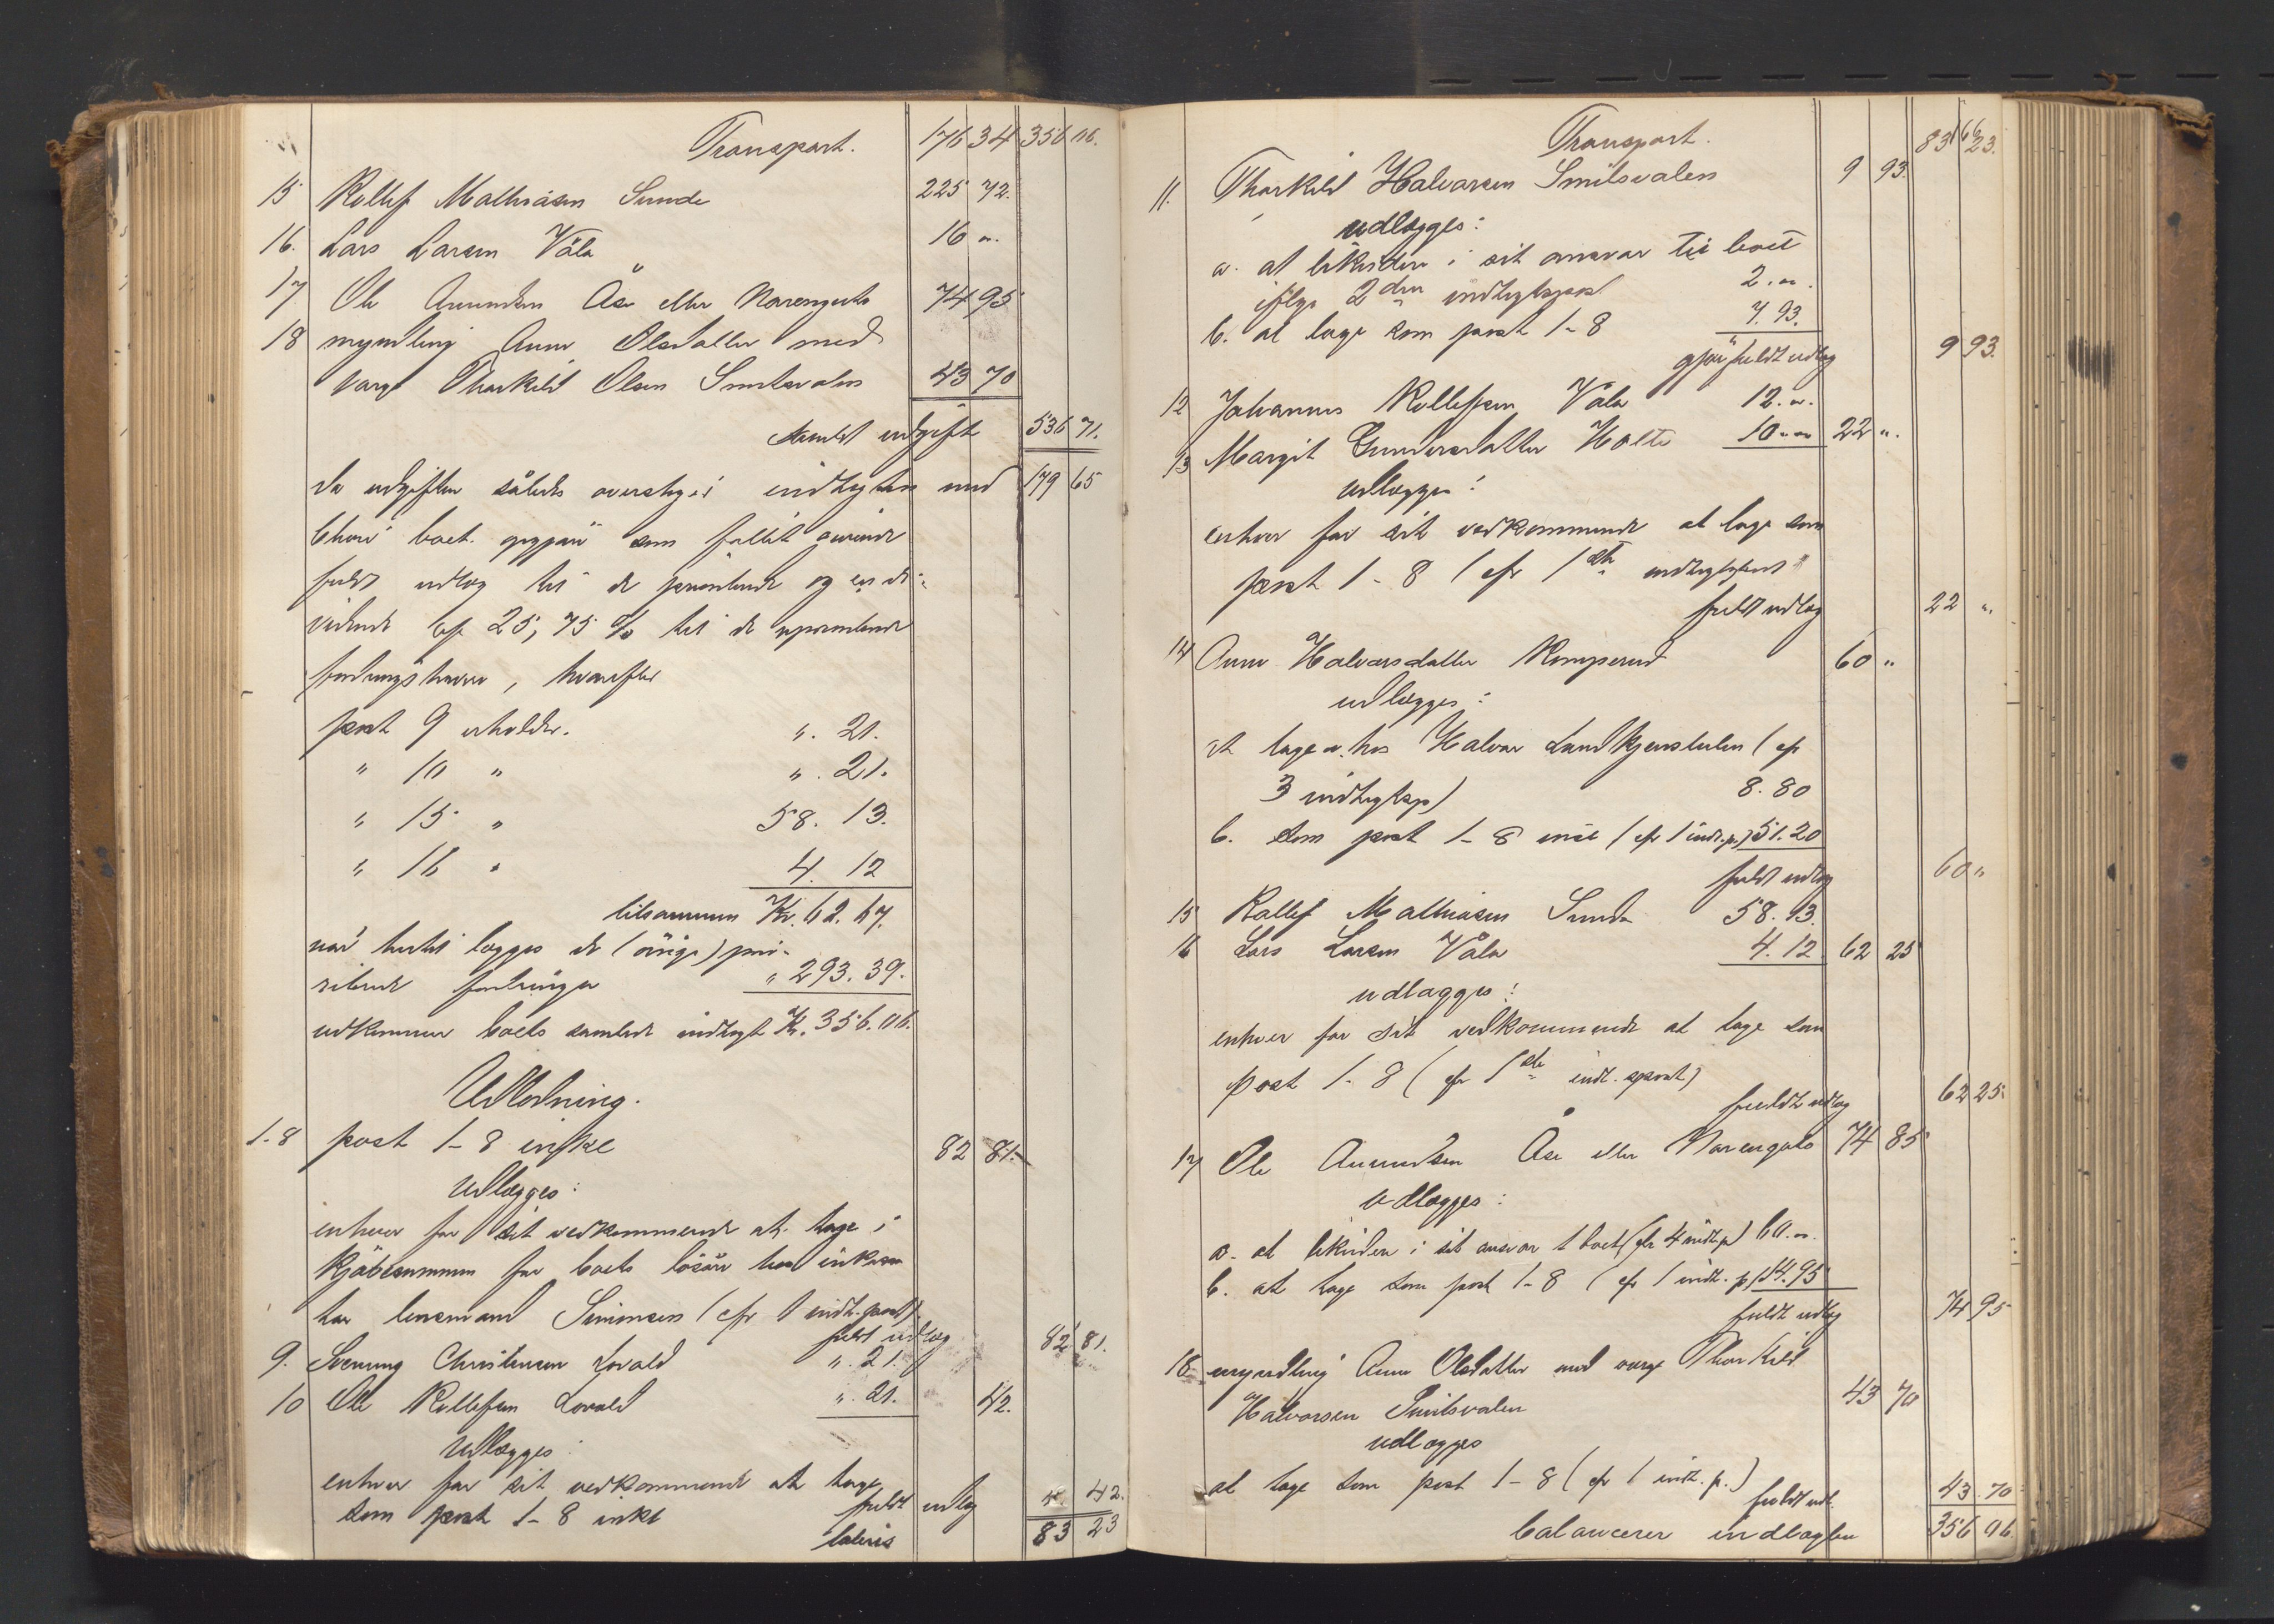 Transport. 176 34 356 06.
15 Rollef Mathiasen Sunde 225 72.
16. Lars Larsen Våla 16 „.
17 Ole Amundsen Åse eller Narengata 74 95
18 myndling Anne Olsdatter med
værge Thorkild Olsen Smilsvalen 43 70
Samlet udgift 536 71.
Da udgiften således overstiger indtægten med 179 65
bliver boet opgjøre som fallit givende
fuldt udlæg til de prioriterede og en di-
vidende af 25,75 % til de upriorterede
fordringshavere, hvorefter
post 9 erholder. „. 21.
„ 10 „ „. 21.
„ 15 „ 58. 13.
„ 16 „ 4. 12
tilsammen Kr. 62. 67.
når hertil lægges de (øvrige) prio-
riterede fordringer „ 293. 39.
udkommer boets samlede indtægt Kr. 356. 06.
Udlodning.
1-8 post 1-8 inkl 82 81.
Udlægges:
enhver for sit vedkommende at tage i
kjøbesummen for boets løsøre hos inkassa
tor lensmand Simonsen (cfr 1 indt. post)
fuldt udlæg 82 81.
9. Svenung Christensen Lovald „. 21.
10 Ole Rollefsen Lovald „. 21. 42.
Udlægges:
enhver for sit vedkommende at tage
som post 1-8 inkl fuldt udlæg „. 42.
lateris 83 23
Transport. 83 23.
11. Thorkild Halvorsen Smilsvalen 9 93.
udlægges:
a. at likvidere i sit ansvar til boet
ifølge 2den indtægtspost 2. „.
b. at tage som post 1-8 7. 93.
gjør fuldt udlæg 9 93.
12 Johannes Rollefsen Våla 12. „.
13 Margit Gundersdatter Holte 10. „ 22 „.
Udlægges:
enhver for sit vedkommende at tage som
post 1-8 (cfr 1ste indtægtspost)
fuldt udlæg 22 „.
14 Anne Halvorsdatter Romperud 60 „
udlægges:
at tage a. hos Halvor (cfr
3 indtægtsp) 8. 80
b. som post 1-8 inkl (cfr 1 indt. p.) 51. 20
fuldt udlæg 60 „
15 Rollef Mathiasen Sunde 58. 13.
16 Lars Larsen Våla 4. 12 62 25
udlægges:
enhver for sit vedkommende at tage som
post 1-8 (cfr 1ste indt. spost)
fuldt udlæg 62 25.
17 Ole Amundsen Åse eller Narengata 74 95
udlægges:
a. at likvidere i sit ansvar t boet (cfr 4 indtp) 60. „.
b. at tage som post 1-8 (cfr 1 indt. p) 14. 95
fuldt udlæg 74 95
18. myndling Anne Olsdatter med værge Thorkild
Halvorsen Smilsvalen 43 70
udlægges
at tage som post 1-8 (cfr 1 indt. p.)
fuldt udl. 43 70
balancerer indtægten 356 06.